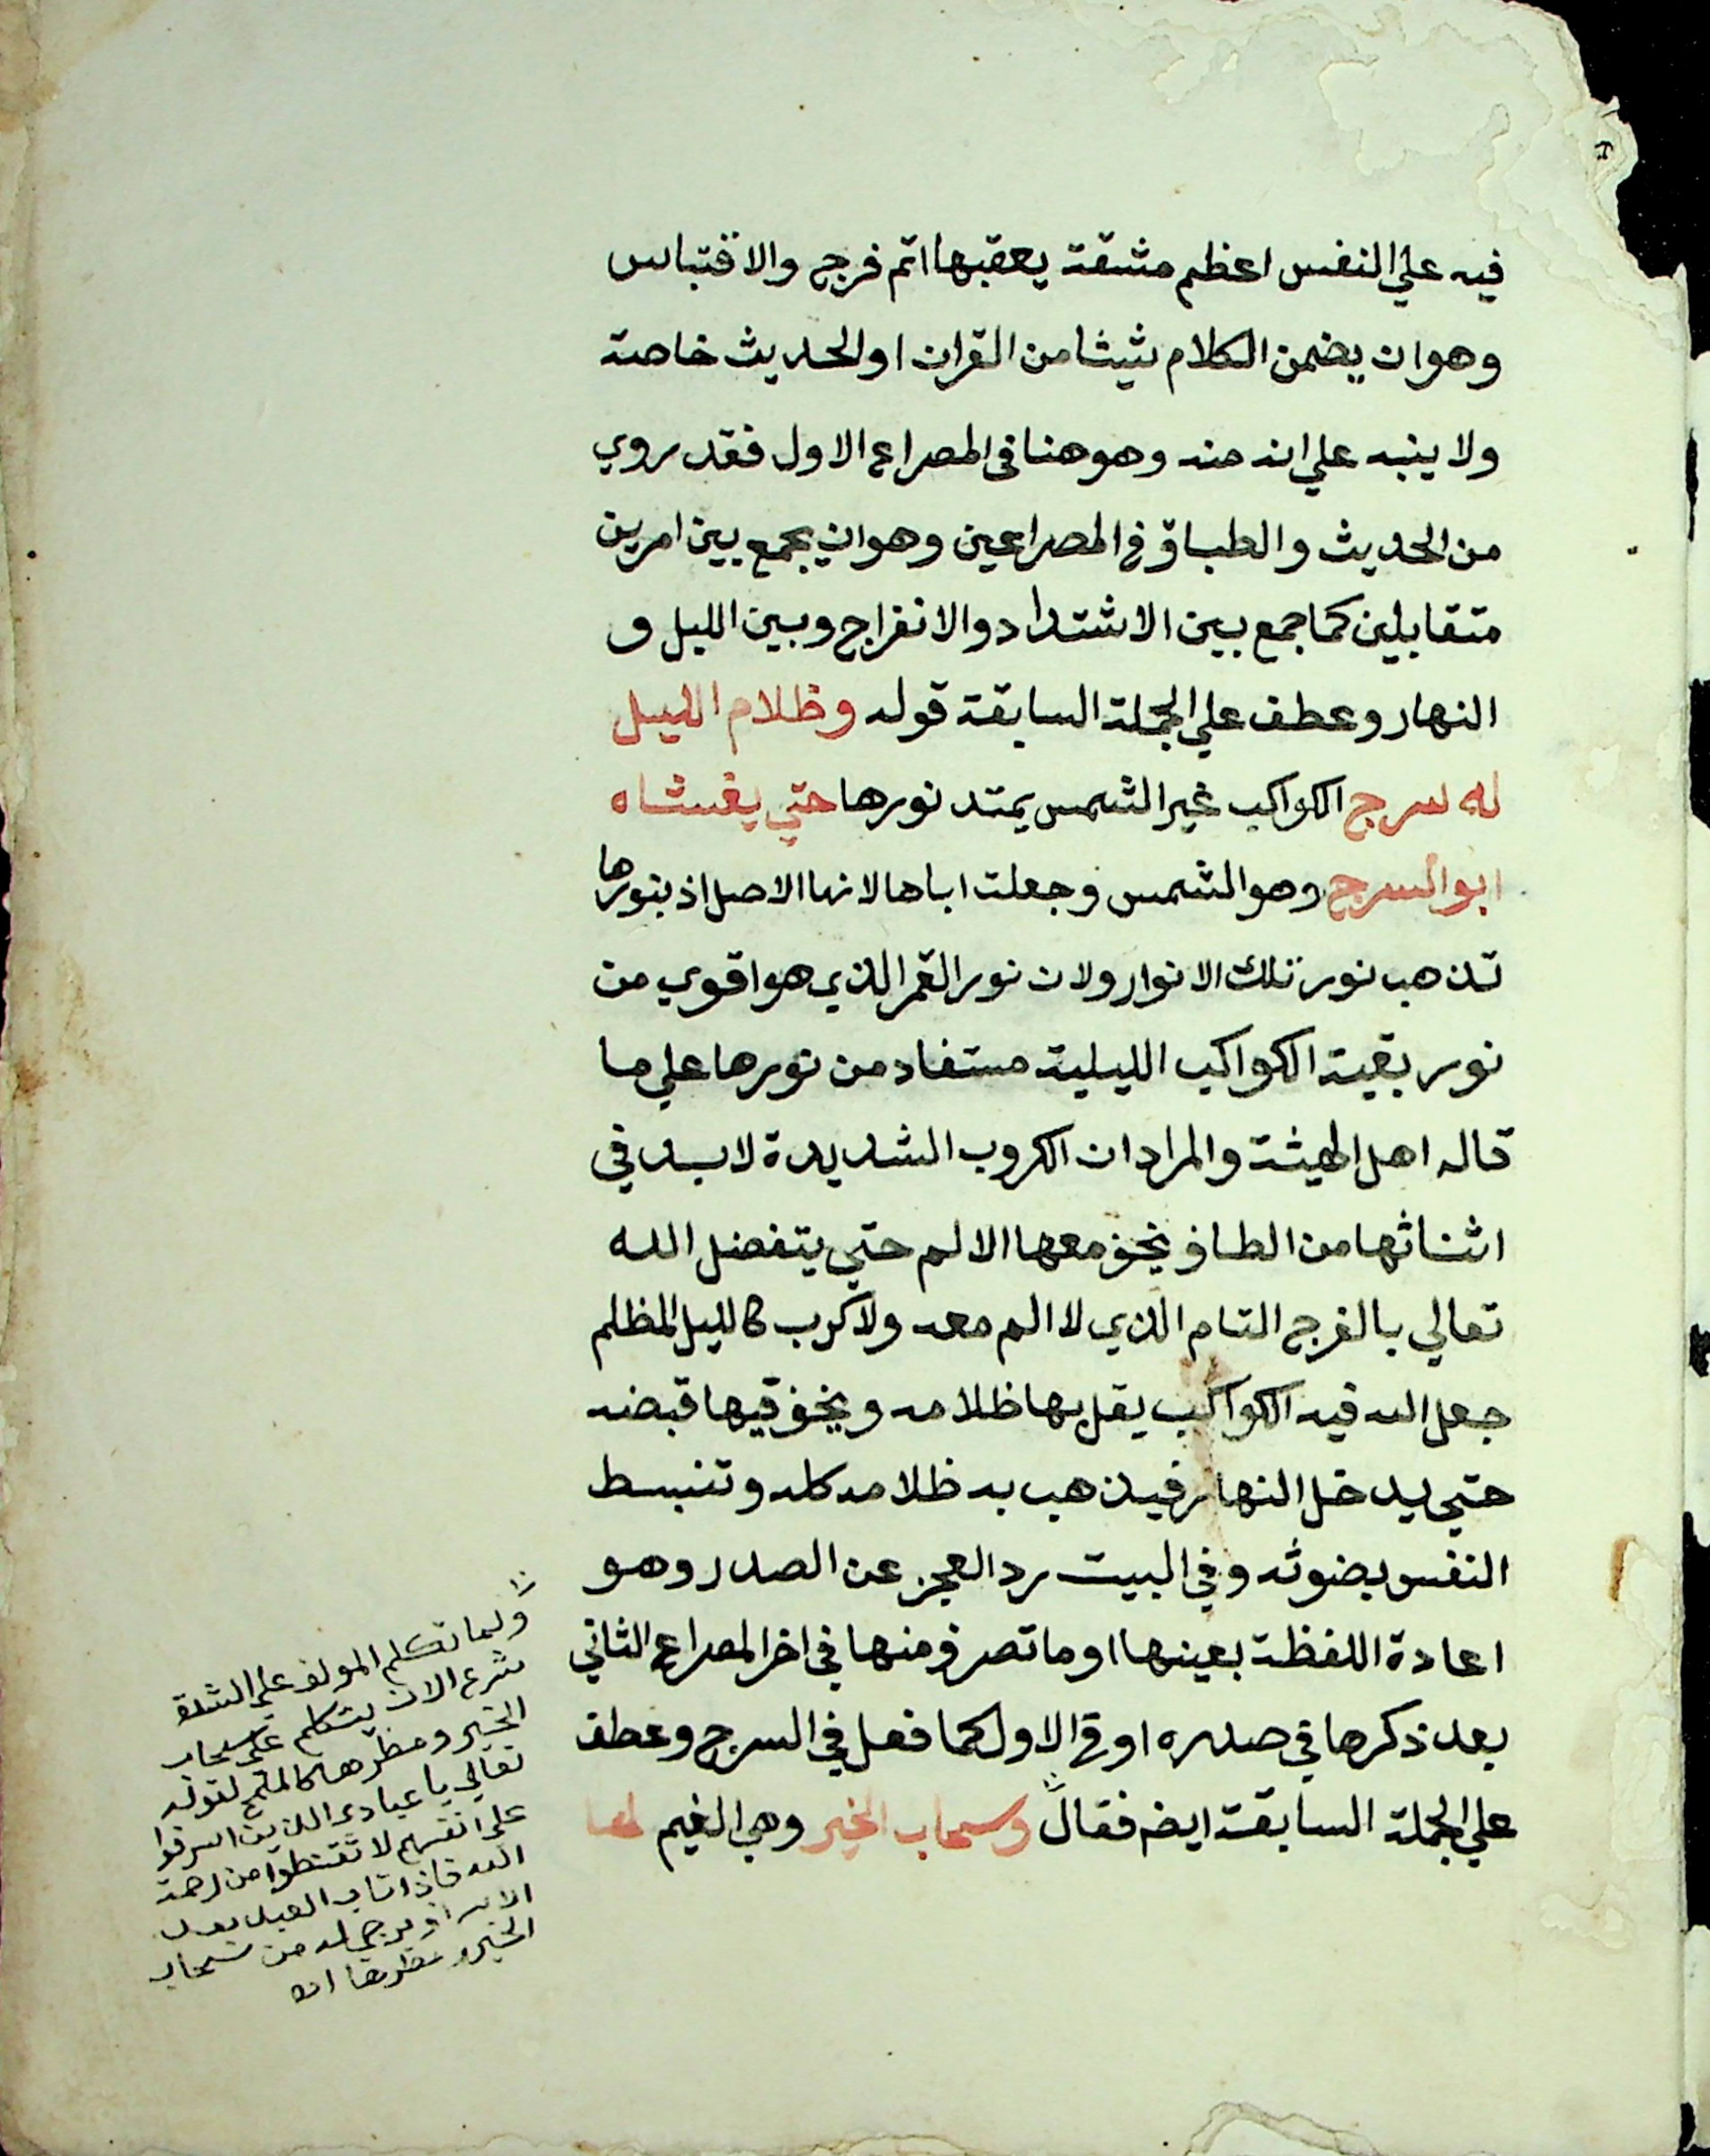 فيه علي النفس اعظم مشقة يعقبها اتم فرج والاقتباس
وهو ان يضمن الكلام شيئا من القران او الحديث خاصة
ولا ينبه علي انه منه وهو هنا في المصراع الاول فقد روي
من الحديث والطباق في المصراعين وهو ان يجمع بين امرين
متقابلين كما جمع بين الاشتداد والانفراج وبين الليل و
النهار وعطف علي الجملة السابقة قوله وظلام الليل
له سرج الكواكب غير الشمس يمتد نورها حتي يغشاه
ابو السرج وهو الشمس وجعلت اباها لانها الاصل اذ بنورها
تذهب نور تلك الانوار ولان نور القمر الذي هو اقوي من
نور بقية الكواكب الليلية مستفاد من نورها علي ما
قاله اهل الهيئة والمراد ان الكروب الشديدة لا بد في
اثنائها من الطاف يخف معها الالم حتي يتفضل الله
تعالي بالفرج التام الذي لا الم معه ولا كرب كالليل المظلم
جعل الله فيه الكواكب يقل بها ظلامه ويخف فيها قبضه
حتي يدخل النهار فيذهب به ظلامه كله وتنبسط
النفس بضوئه وفي البيت رد العجز عن الصدر وهو
اعادة اللفظة بعينها او ما تصرف منها في اخر المصراع الثاني
بعد ذكرها في صدره او في الاول كما فعل في السرج وعطف
علي الجملة السابقة ايضم فقال وسحاب الخير وهي الغيم لها
ولما تكلم المولف علي الشدة
شرع الان يتكلم علي سحاب
الخير ومطرها كالملمح لقوله
تعالي يا عبادي الذين اسرفوا
علي انفسهم لا تقنطوا من رحمة
الله فاذا تاب العبد بعد
الاسراف يرجي له من سحاب
الخير ومطرها اه